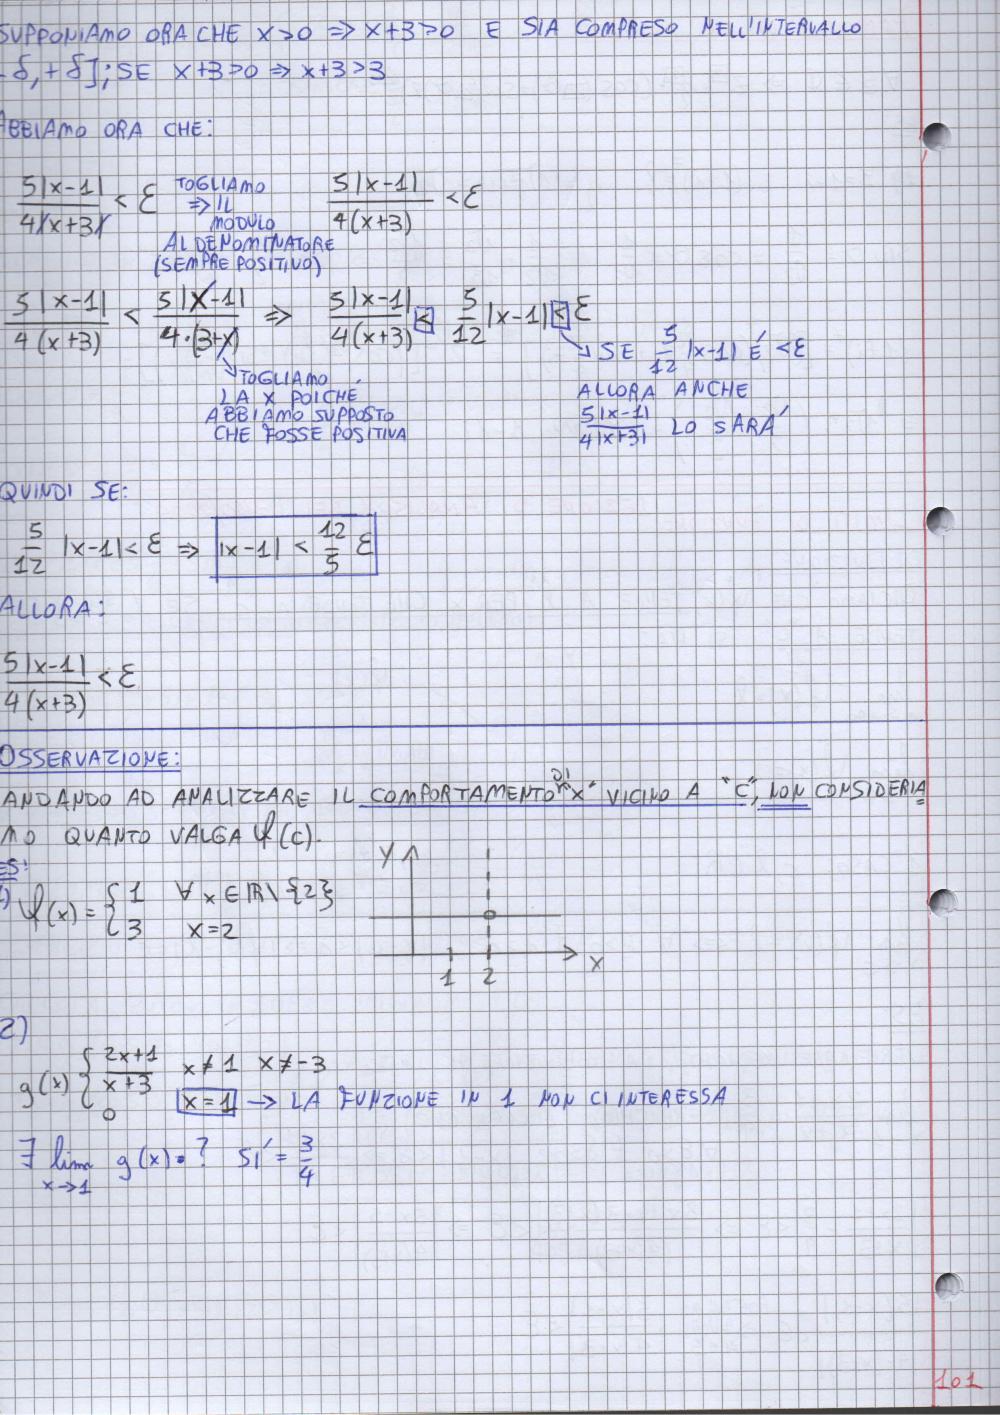 SUPPONIAMO ORA CHE x>0 => x+3>0 E SIA COMPRESO NELL'INTERVALLO
-δ,+δ]; SE x+3>0 => x+3>3
ABBIAMO ORA CHE:
5|x-1| / 4|x+3| < ε TOGLIAMO => IL MODULO AL DENOMINATORE (SEMPRE POSITIVO) 5|x-1| / 4(x+3) < ε
5|x-1| / 4(x+3) < 5|x-1| / 4·(3+x) => 5|x-1| / 4(x+3) < 5/12 |x-1| < ε
TOGLIAMO
LA X POICHÉ
ABBIAMO SUPPOSTO
CHE FOSSE POSITIVA
SE 5/12 |x-1| É <ε
ALLORA ANCHE
5|x-1| / 4|x+3| LO SARÁ
QUINDI SE:
5/12 |x-1| < ε => |x-1| < 12/5 ε
ALLORA:
5|x-1| / 4(x+3) < ε
OSSERVAZIONE:
ANDANDO AD ANALIZZARE IL COMPORTAMENTO DI "X" VICINO A "C", NON CONSIDERIA
MO QUANTO VALGA φ(C).
ES:
1) φ(x) = { 1 ∀ x ∈ ℝ\{2}
3 x=2
Y
1 2 X
2)
g(x) { 2x+1 / x+3 x≠1 x≠-3
0 x=1 → LA FUNZIONE IN 1 NON CI INTERESSA
∃ lim x→1 g(x)=? SI' = 3/4
101